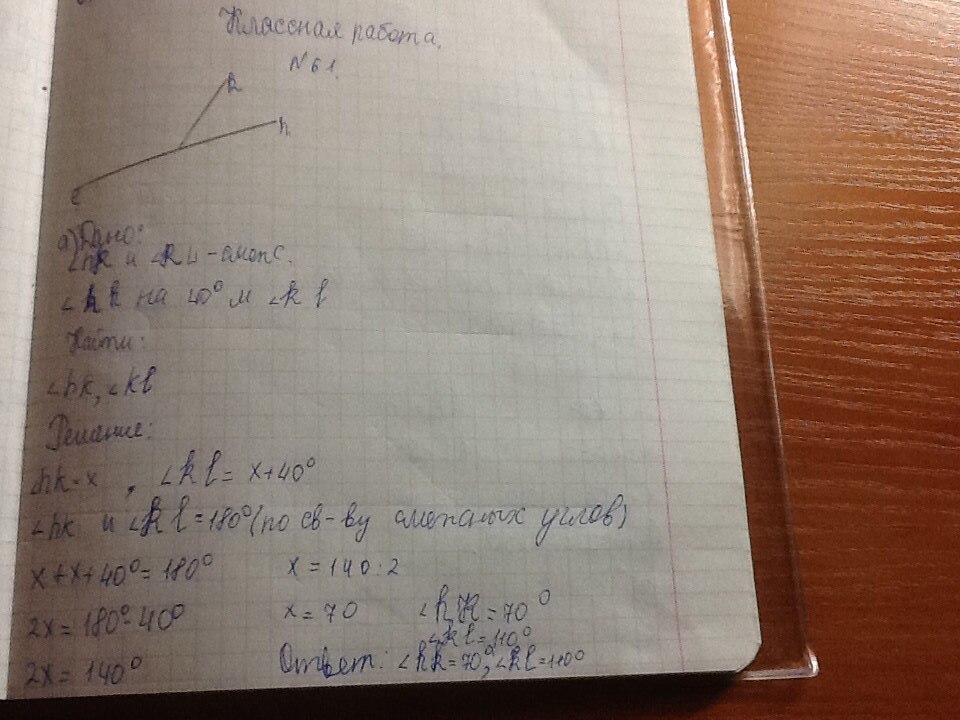 Классная работа.
№61.
k
h
l
а) Дано:
∠hk и ∠kl - смеж.
∠hk на 40° м ∠kl
Найти:
∠hk, ∠kl
Решение:
∠hk = x , ∠kl = x+40°
∠hk и ∠kl = 180° (по св-ву смежных углов)
x+x+40°=180° x = 140:2
2x = 180°-40° x = 70 ∠hk = 70°
∠kl = 110°
2x = 140° Ответ: ∠hk=70°, ∠kl=110°